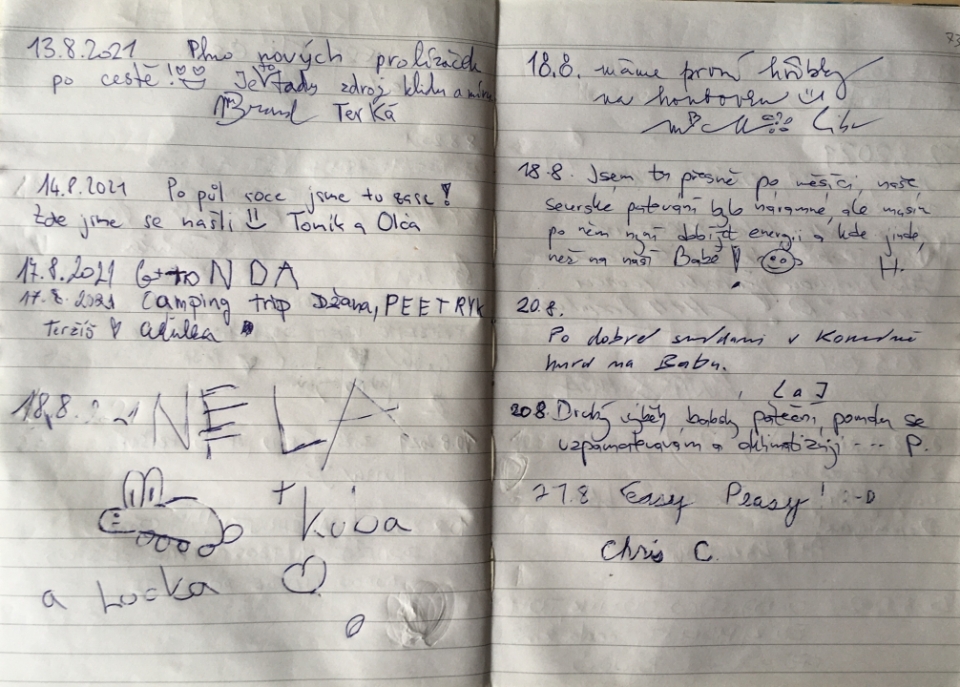 13.8.2021 Plno nových prolízaček
po cestě! Je to tady zdroj klidu a míru
Terka
14.8.2021 Po půl roce jsme tu zase!
Zde jsme se našli Toník a Olča
17.8.2021 NDA
17.8.2021 Camping trip Džana, PEETRYK
Terziš
18.8. NELA
+ Kuba
a Lucka
18.8. máme první hříbky
na
18.8. Jsem tu přesně po měsíci, naše
severské putování bylo náramné, ale musím
po něm nyní dobíjet energii a kde jinde,
než na naší Babě! H.
20.8.
Po dobré v
hurá na Babu.
[a]
20.8. Druhý výběh páteční, pomalu se
vzpamatovávám a aklimatizuji .... P.
21.8 Easy Peasy! :-D
Chris C.